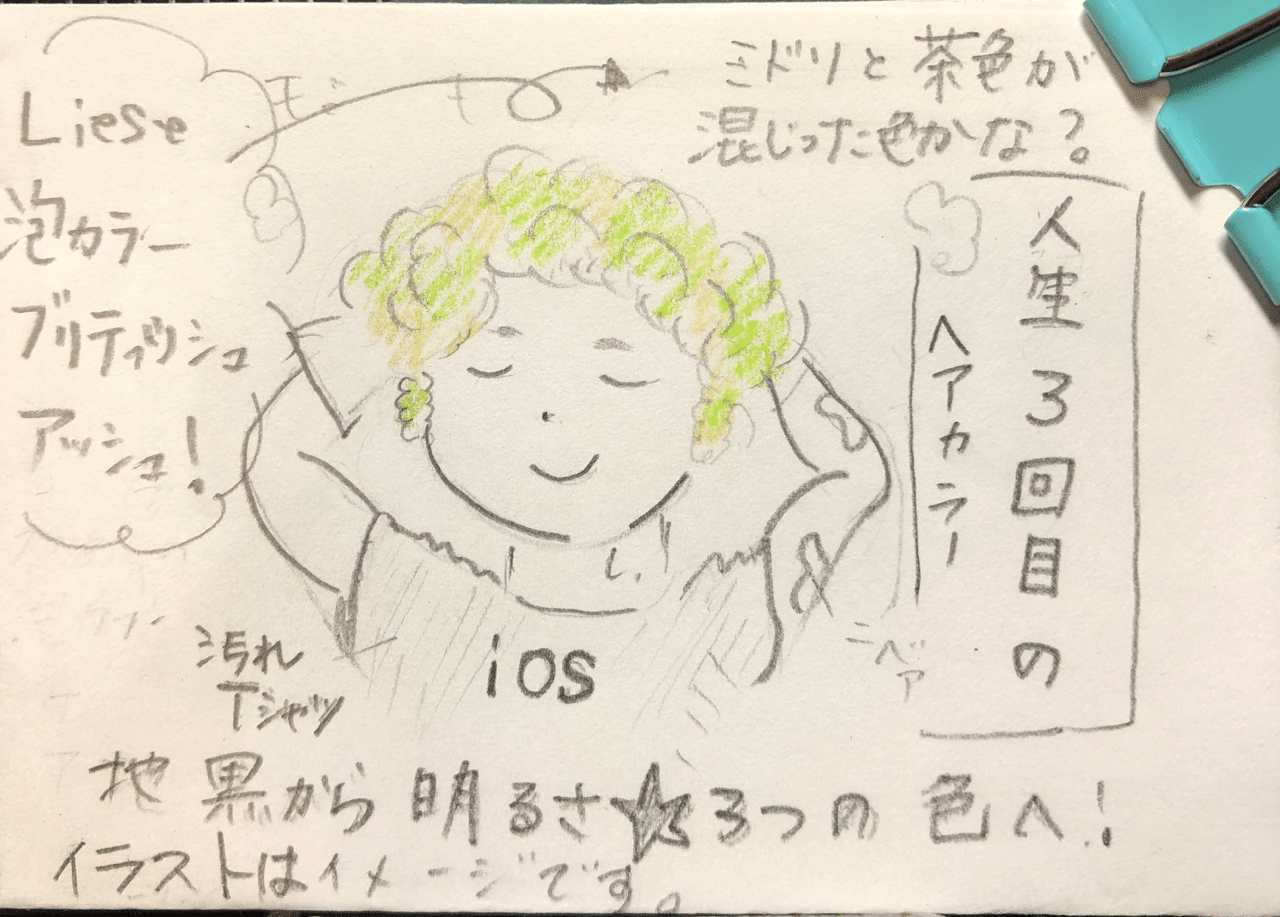 人生3回目の
ヘアカラー
ミドリと茶色が
混じった色かな?。
Liese
泡カラー
ブリティッシュ
アッシュ!
モミ
キ
ニベア
汚れ
Tシャツ
iOS
地黒から明るさ★3つの色へ!
イラストはイメージです。